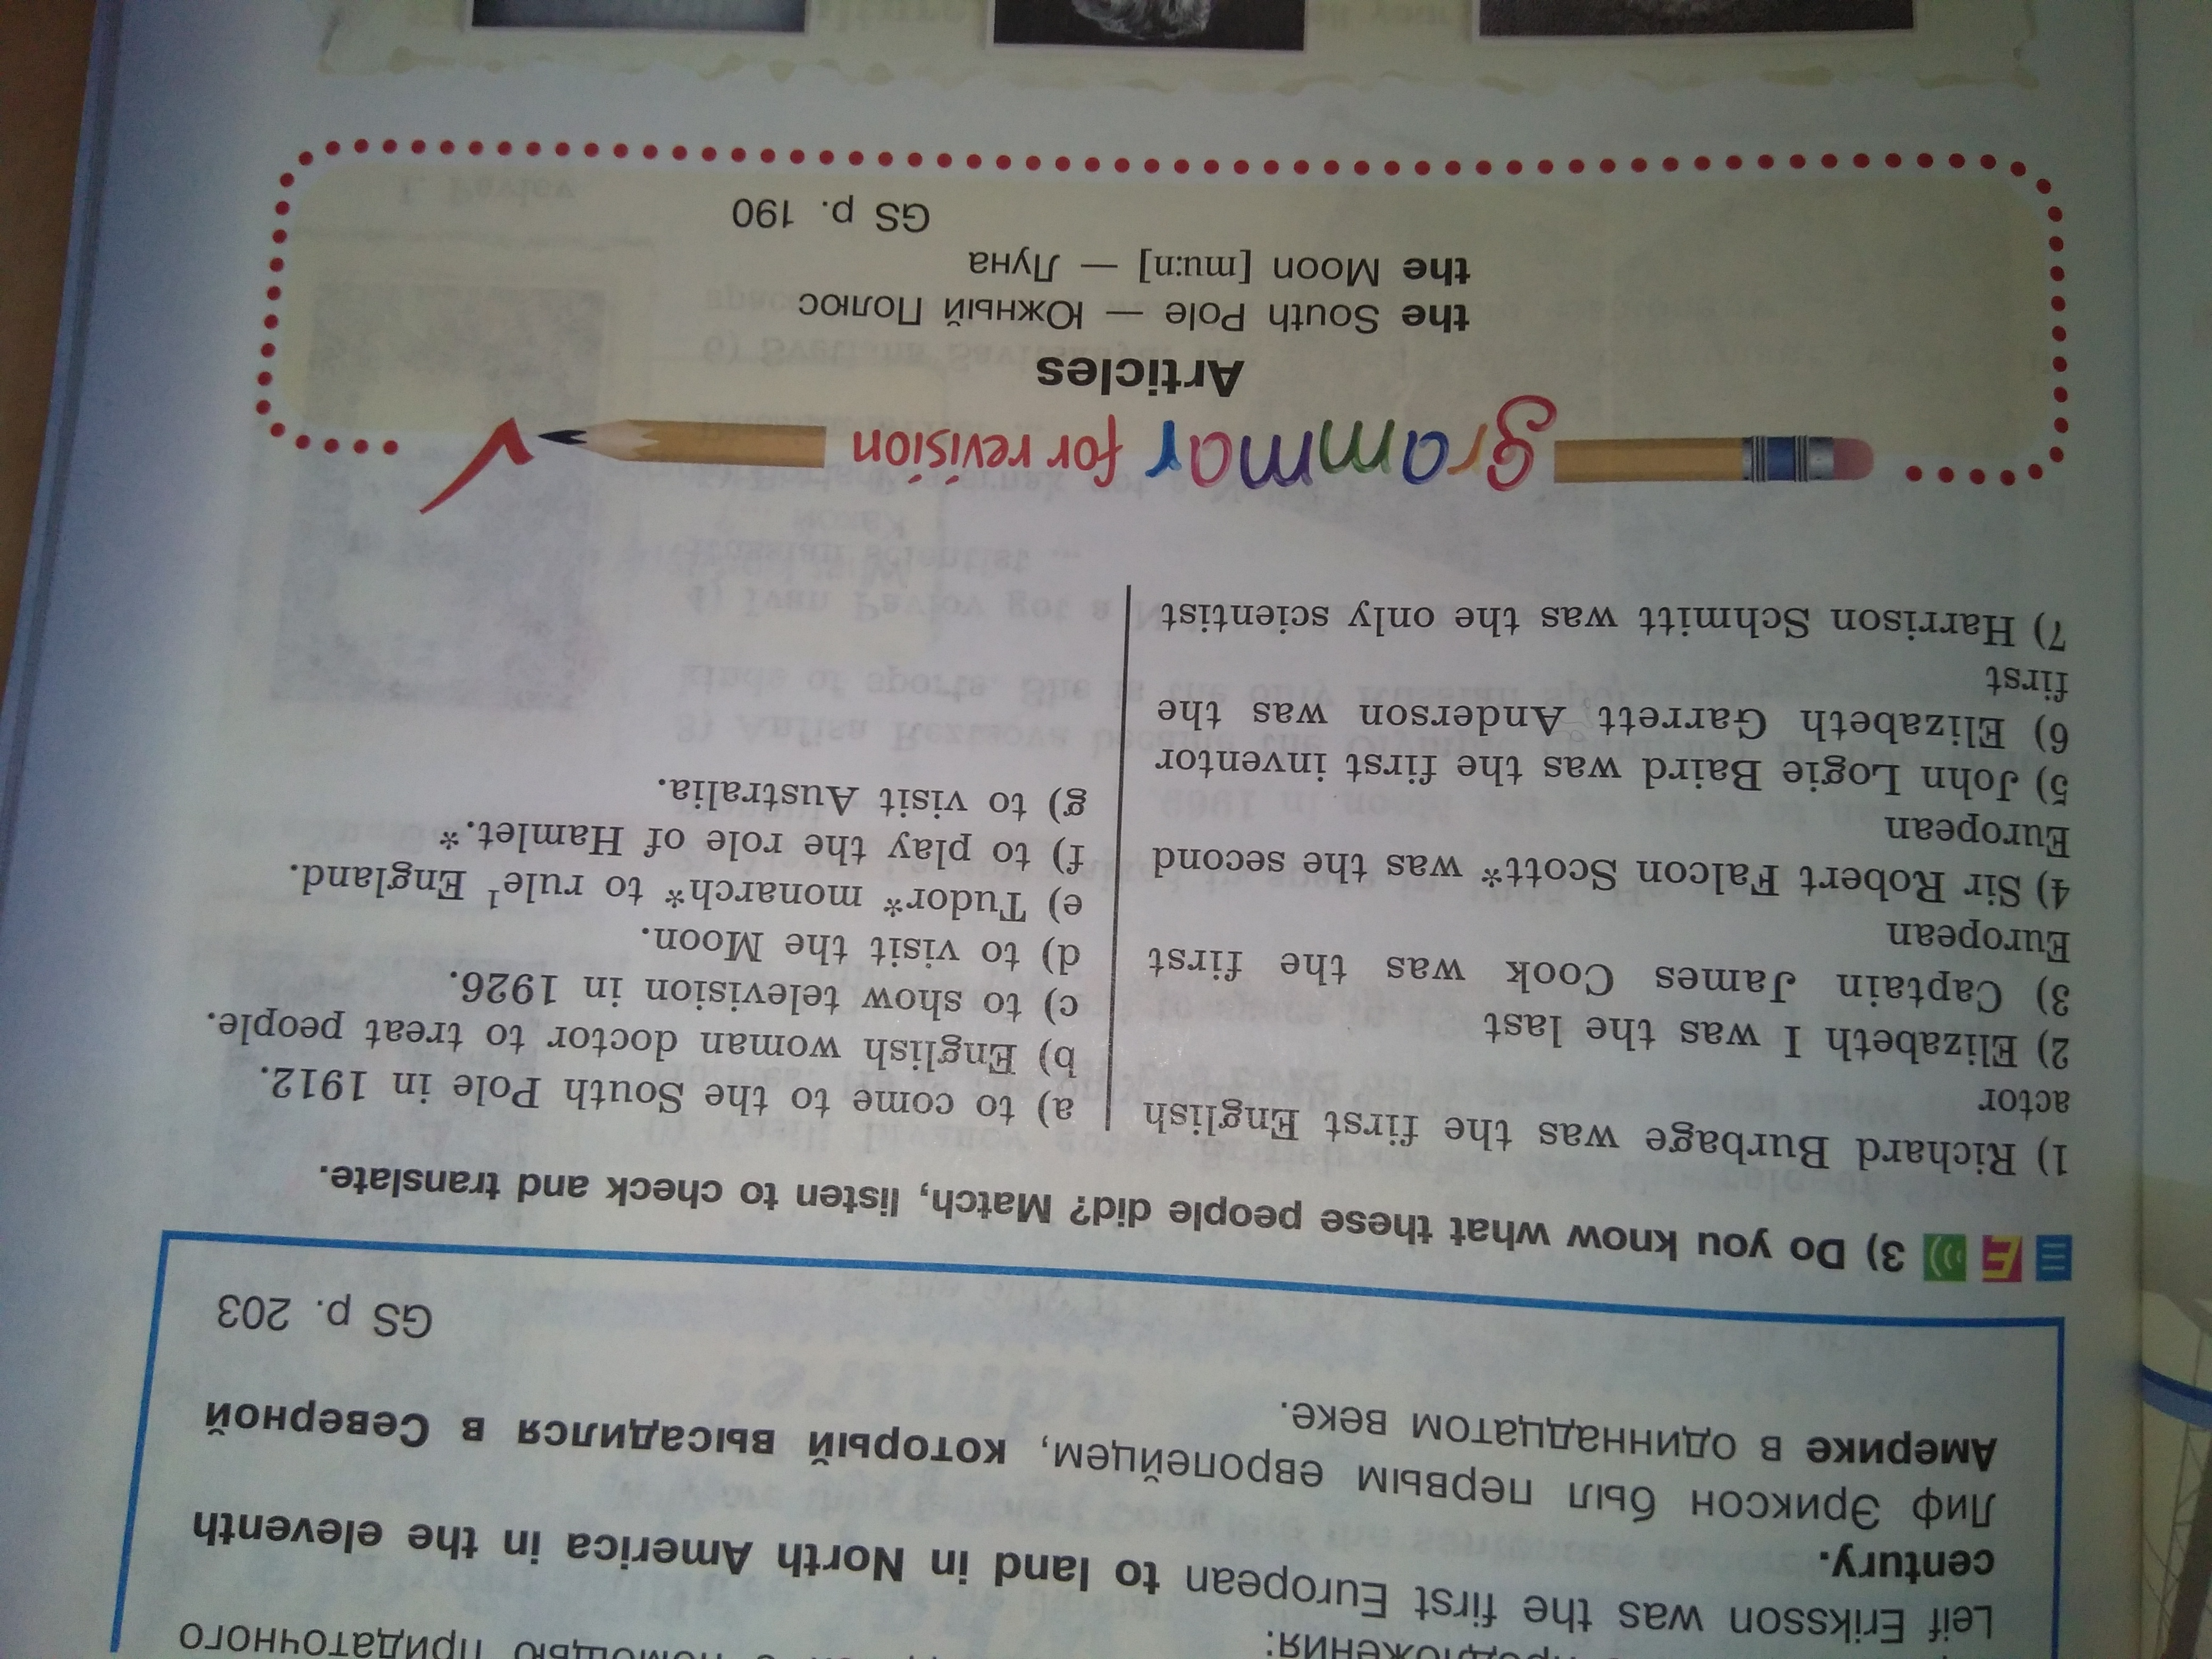 помощью придаточного
Leif Eriksson was the first European to land in North America in the eleventh
century.
Лиф Эриксон был первым европейцем, который высадился в Северной
Америке в одиннадцатом веке.
GS p. 203
3) Do you know what these people did? Match, listen to check and translate.
1) Richard Burbage was the first English
actor
2) Elizabeth I was the last
3) Captain James Cook was the first
European
4) Sir Robert Falcon Scott* was the second
European
5) John Logie Baird was the first inventor
6) Elizabeth Garrett Anderson was the
first
7) Harrison Schmitt was the only scientist
a) to come to the South Pole in 1912.
b) English woman doctor to treat people.
c) to show television in 1926.
d) to visit the Moon.
e) Tudor* monarch* to rule¹ England.
f) to play the role of Hamlet.*
g) to visit Australia.
grammar for revision
Articles
the South Pole — Южный Полюс
the Moon [mu:n] — Луна
GS p. 190